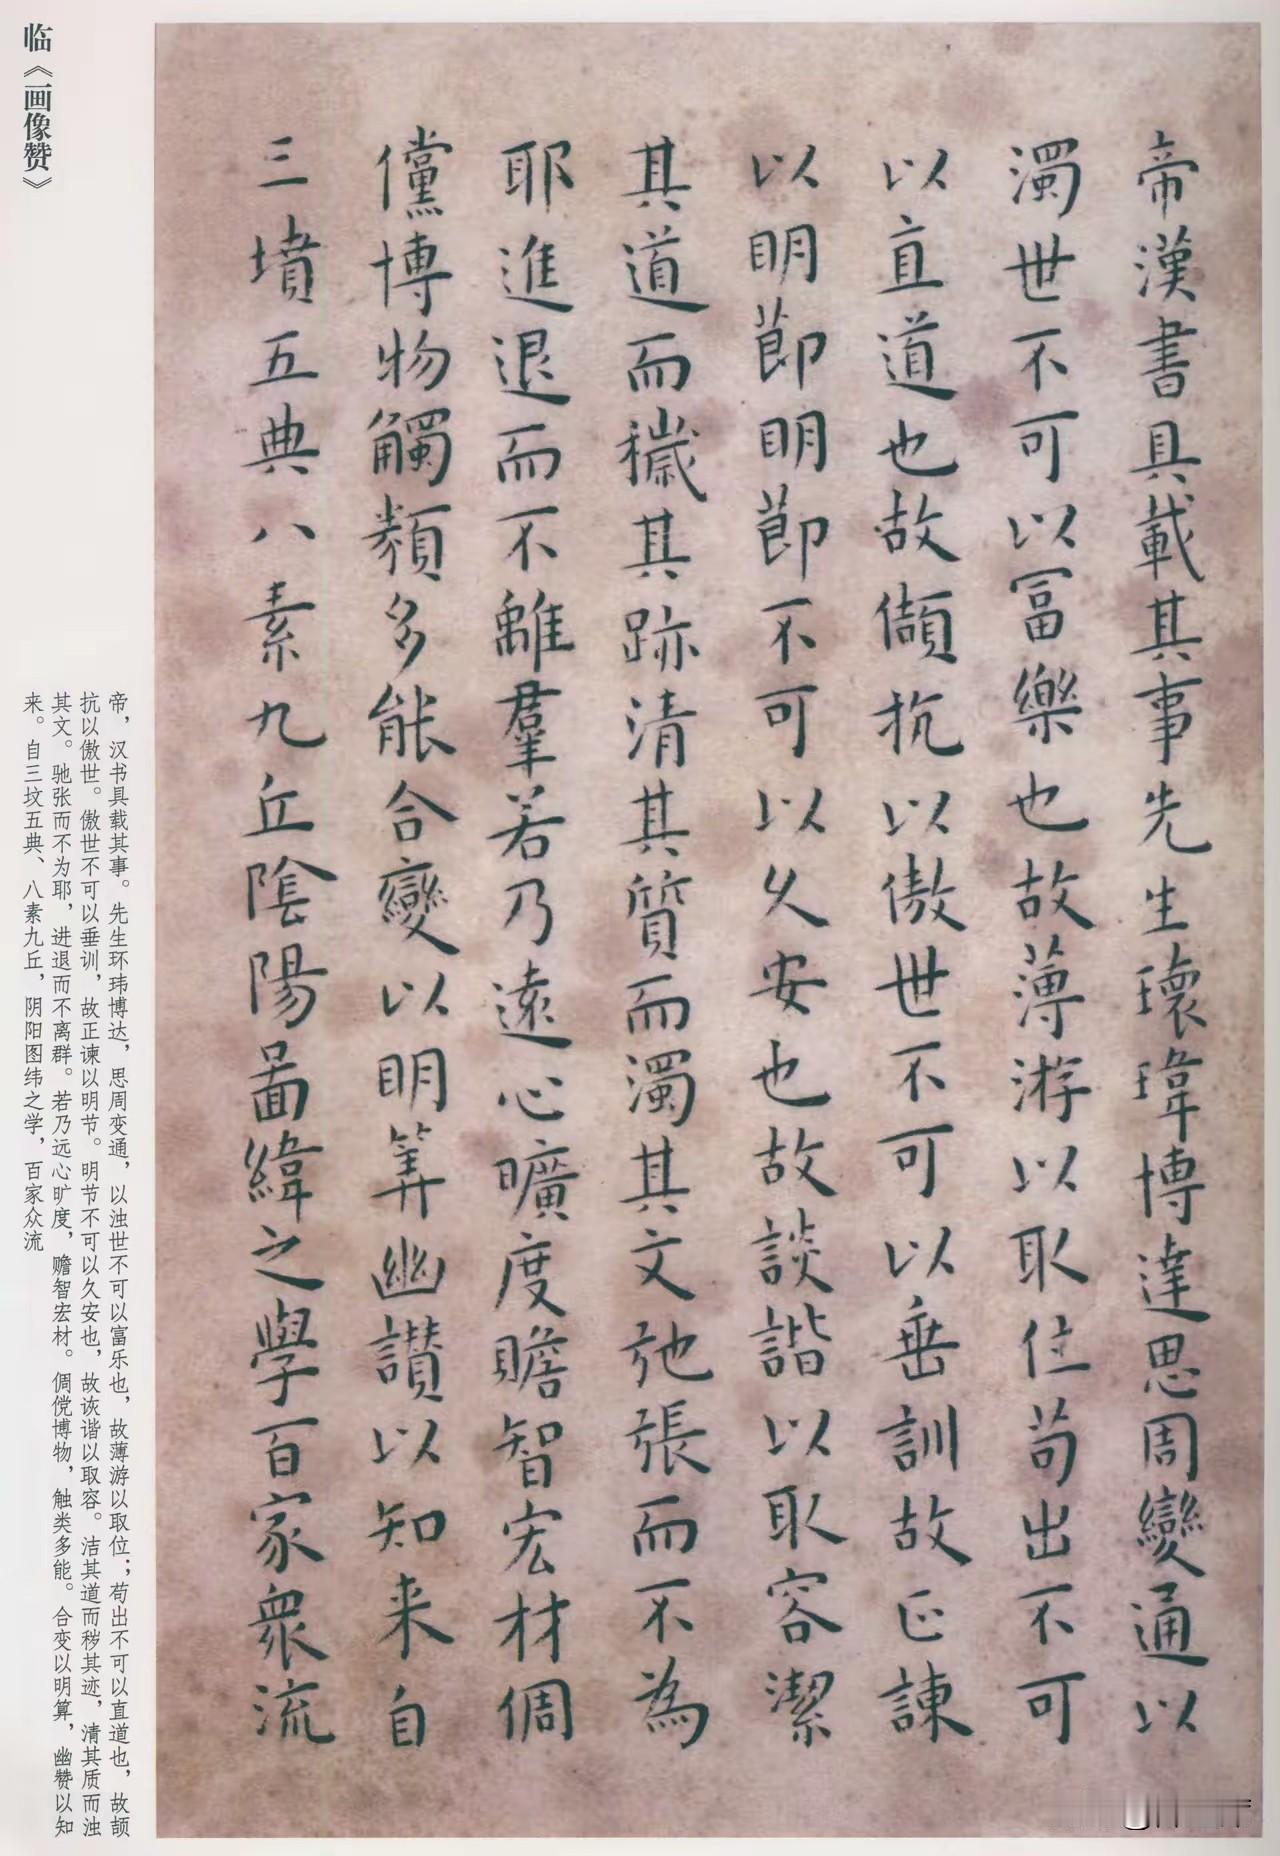 临《画像赞》
帝漢書具載其事先生瓌瑋博達思周變通以
濁世不可以冨樂也故薄游以取位苟出不可
以直道也故傾抗以傲世傲世不可以垂訓故正諫
以明節明節不可以久安也故談諧以取容潔
其道而穢其跡清其質而濁其文弛張而不為
耶進退而不離羣若乃遠心曠度贍智宏材倜
儻博物觸類多能合變以明筭幽讃以知来自
三墳五典八素九丘陰陽啚緯之學百家衆流
帝，汉书具载其事。先生环玮博达，思周变通，以浊世不可以富乐也，故薄游以取位；苟出不可以直道也，故颉
抗以傲世。傲世不可以垂训，故正谏以明节。明节不可以久安也，故诙谐以取容。洁其道而秽其迹，清其质而浊
其文。驰张而不为耶，进退而不离群。若乃远心旷度，赡智宏材。倜傥博物，触类多能。合变以明算，幽赞以知
来。自三坟五典、八素九丘，阴阳图纬之学，百家众流